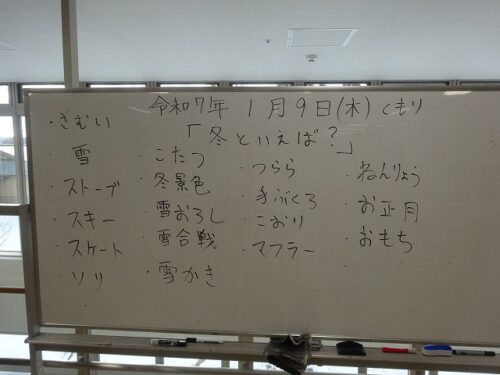 令和7年 1月9日(木) くもり
「冬といえば?」
・さむい
・雪
・ストーブ
・スキー
・スケート
・ソリ
・こたつ
・冬景色
・雪おろし
・雪合戦
・雪かき
・つらら
・手ぶくろ
・こおり
・マフラー
・ねんりょう
・お正月
・おもち